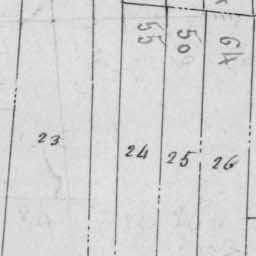 55 50 64
23 24 25 26